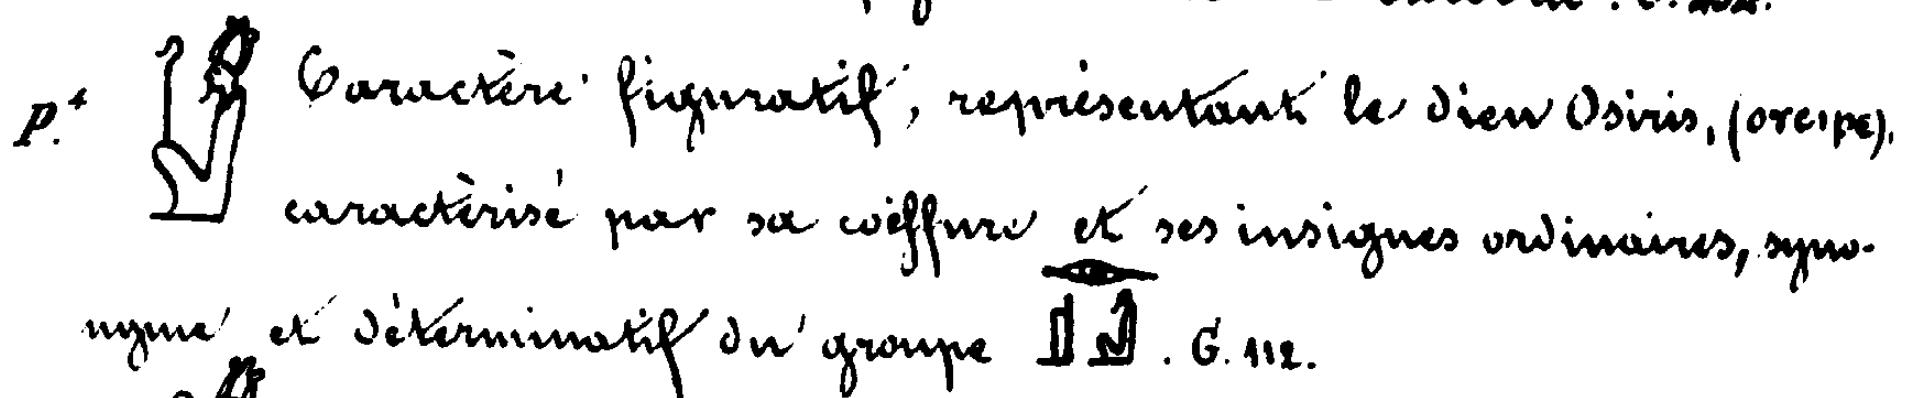 P.⁺ Caractère figuratif, représentant le dieu Osiris, (ⲟⲩⲥⲓⲣⲉ).
caractérisé par sa coëffure et ses insignes ordinaires, syno-
nyme et déterminatif du groupe 𓁹𓊨𓀭. G. 112.